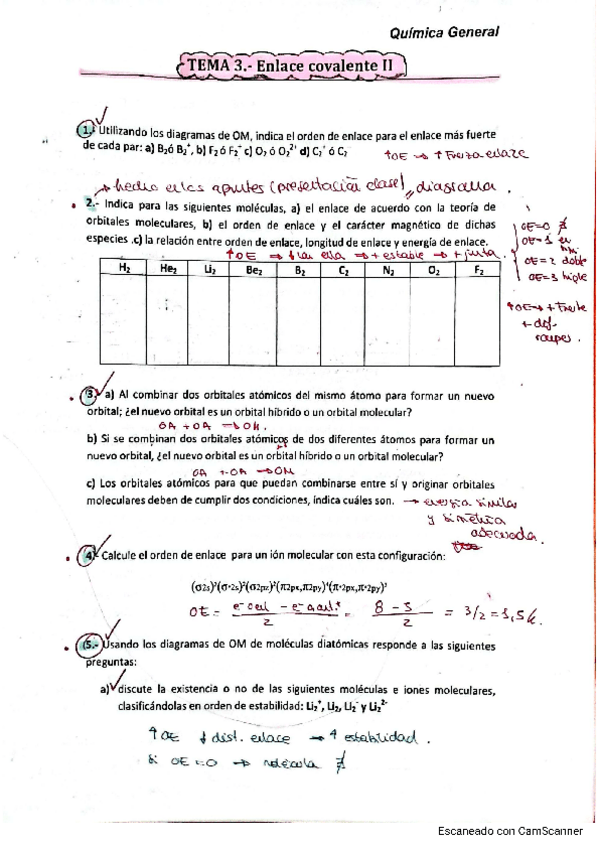 Química General
TEMA 3.- Enlace covalente II
1.- Utilizando los diagramas de OM, indica el orden de enlace para el enlace más fuerte
de cada par: a) B₂ó B₂⁺, b) F₂ó F₂⁻ c) O₂ ó O₂²⁺ d) C₂⁺ ó C₂
↑OE → ↑ Fuerza enlace
→ hecho en los apuntes (presentación clase), diagrama.
2.- Indica para las siguientes moléculas, a) el enlace de acuerdo con la teoría de
orbitales moleculares, b) el orden de enlace y el carácter magnético de dichas
especies .c) la relación entre orden de enlace, longitud de enlace y energía de enlace.
OE=0 ∄
OE=1
OE=2 doble
OE=3 triple
↑OE → → + estable → + junta.
H₂ He₂ Li₂ Be₂ B₂ C₂ N₂ O₂ F₂
↑OE → + Fuerte
3.- a) Al combinar dos orbitales atómicos del mismo átomo para formar un nuevo
orbital; ¿el nuevo orbital es un orbital híbrido o un orbital molecular?
OA + OA → OH.
b) Si se combinan dos orbitales atómicos de dos diferentes átomos para formar un
nuevo orbital, ¿el nuevo orbital es un orbital híbrido o un orbital molecular?
OA + OA → OM
c) Los orbitales atómicos para que puedan combinarse entre sí y originar orbitales
moleculares deben de cumplir dos condiciones, índica cuáles son. → energía similar
y simetría
adecuada.
4.- Calcule el orden de enlace para un ión molecular con esta configuración:
(σ2s)²(σ*2s)²(σ2pz)²(π2px,π2py)⁴(π*2px,π*2py)³
OE = e⁻ enl - e⁻ a.enl. / 2 = 8 - 5 / 2 = 3/2 = 1,5
5.- Usando los diagramas de OM de moléculas diatómicas responde a las siguientes
preguntas:
a) discute la existencia o no de las siguientes moléculas e iones moleculares,
clasificándolas en orden de estabilidad: Li₂⁺, Li₂, Li₂⁻ y Li₂²⁻
↑ OE ↓ dist. enlace → ↑ estabilidad.
si OE=0 → molécula ∄
Escaneado con CamScanner